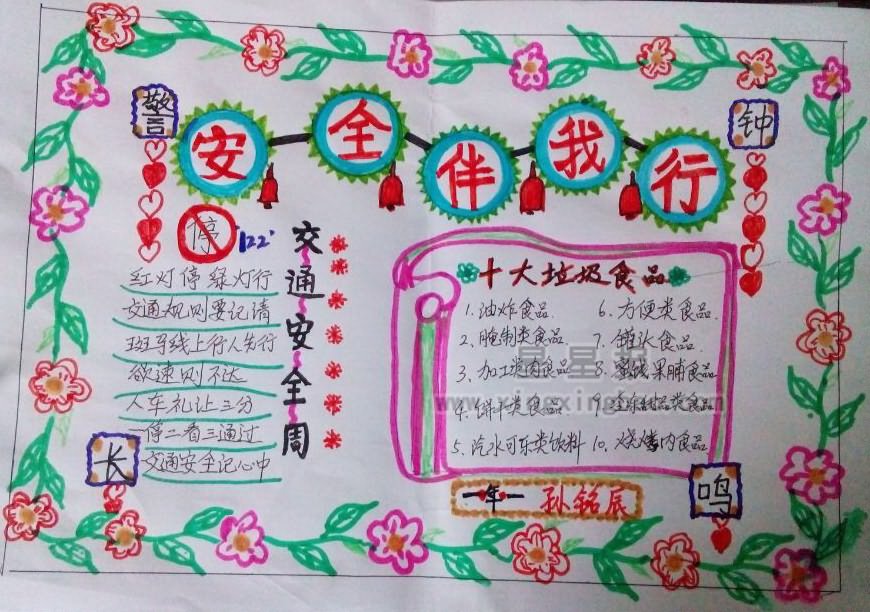 警
钟
安全伴我行
停
122
红灯停 绿灯行
交通规则要记请
斑马线上行人先行
欲速则不达
人车礼让三分
一停二看三通过
交通安全记心中
交通安全周
十大垃圾食品
1.油炸食品
6.方便类食品.
2.腌制类食品.
7.罐头食品.
3.加工类肉食品
8.蜜饯果脯食品.
4.饼干类食品
9.
5.汽水可乐类饮料
10.烧烤肉食品.
长
鸣
一年一 孙铭辰